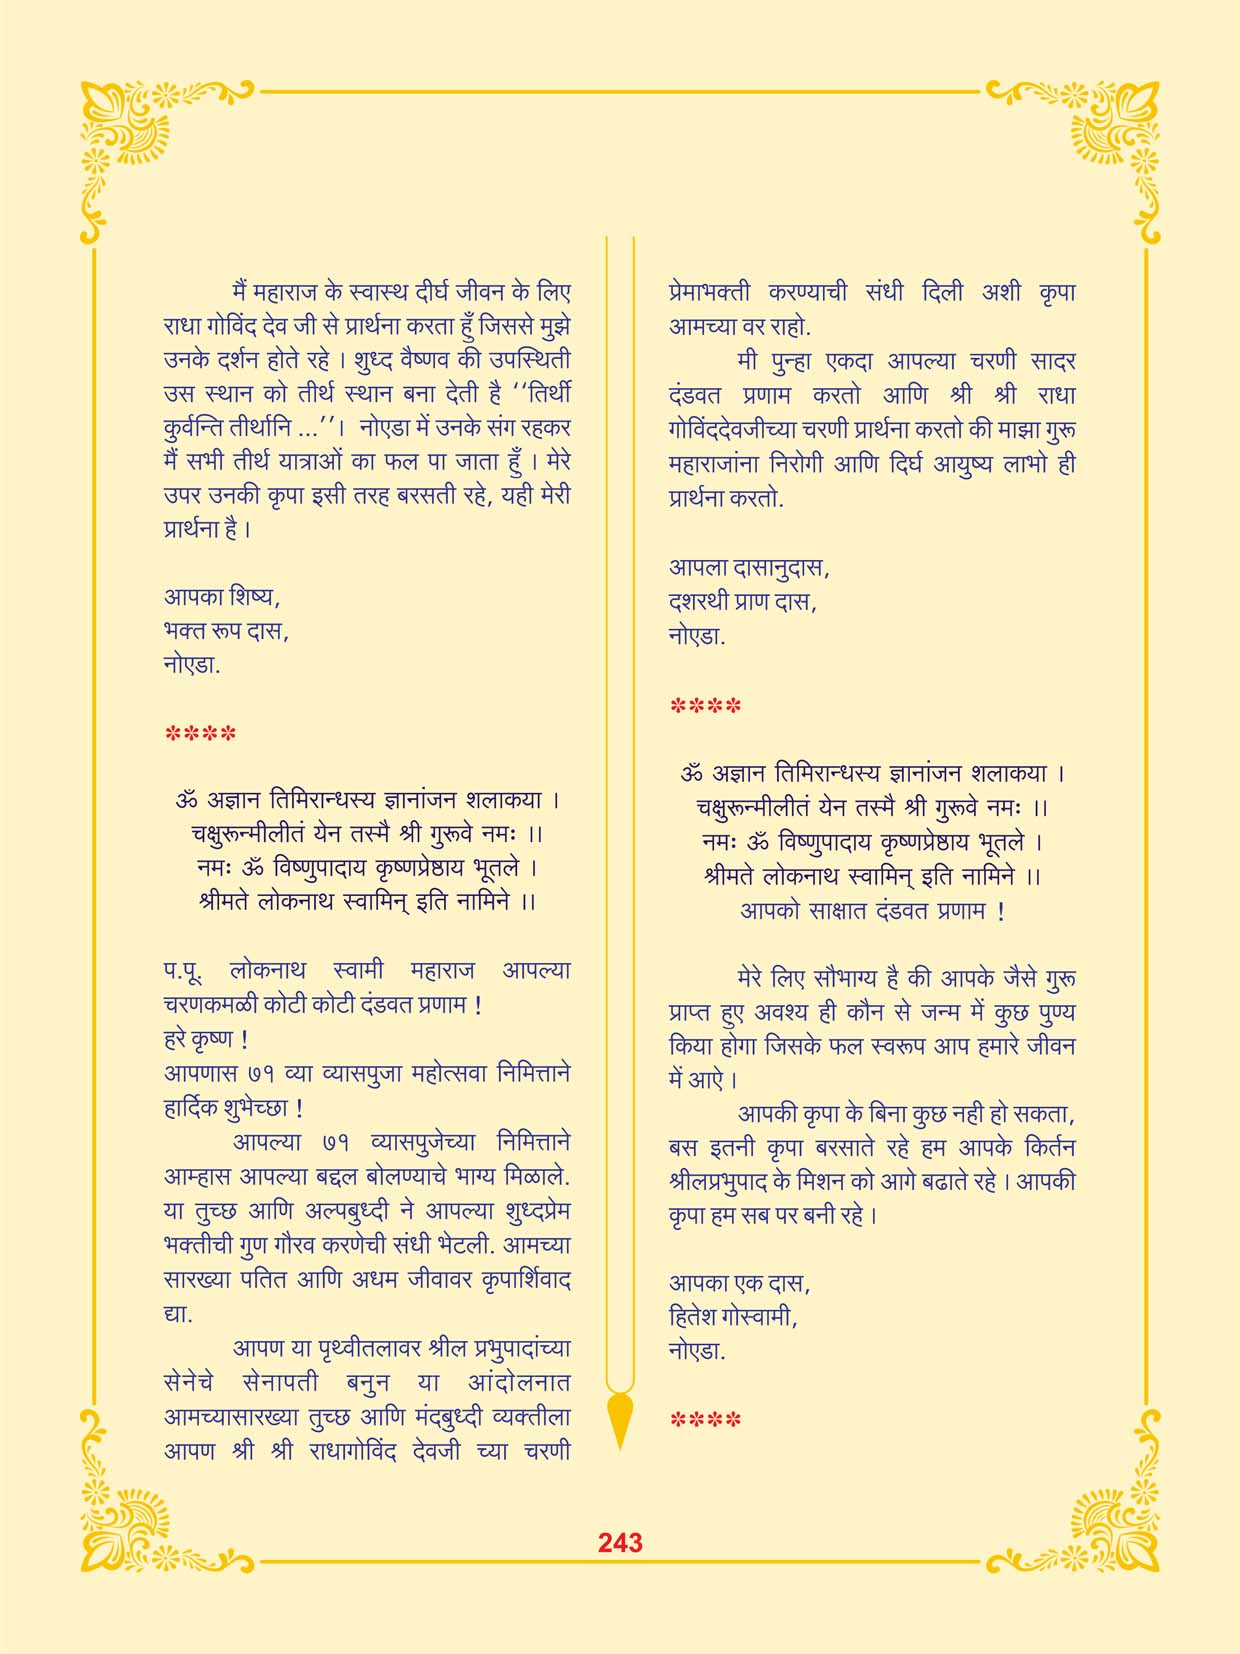 मैं महाराज के स्वास्थ दीर्घ जीवन के लिए
राधा गोविंद देव जी से प्रार्थना करता हुँ जिससे मुझे
उनके दर्शन होते रहे । शुध्द वैष्णव की उपस्थिती
उस स्थान को तीर्थ स्थान बना देती है ‘‘तिर्थी
कुर्वन्ति तीर्थानि ...’’। नोएडा में उनके संग रहकर
मैं सभी तीर्थ यात्राओं का फल पा जाता हुँ । मेरे
उपर उनकी कृपा इसी तरह बरसती रहे, यही मेरी
प्रार्थना है ।
आपका शिष्य,
भक्त रूप दास,
नोएडा.
****
ॐ अज्ञान तिमिरान्धस्य ज्ञानांजन शलाकया ।
चक्षुरून्मीलीतं येन तस्मै श्री गुरूवे नमः ।।
नमः ॐ विष्णुपादाय कृष्णप्रेष्ठाय भूतले ।
श्रीमते लोकनाथ स्वामिन् इति नामिने ।।
प.पू. लोकनाथ स्वामी महाराज आपल्या
चरणकमळी कोटी कोटी दंडवत प्रणाम !
हरे कृष्ण !
आपणास ७१ व्या व्यासपुजा महोत्सवा निमित्ताने
हार्दिक शुभेच्छा !
आपल्या ७१ व्यासपुजेच्या निमित्ताने
आम्हास आपल्या बद्दल बोलण्याचे भाग्य मिळाले.
या तुच्छ आणि अल्पबुध्दी ने आपल्या शुध्दप्रेम
भक्तीची गुण गौरव करणेची संधी भेटली. आमच्या
सारख्या पतित आणि अधम जीवावर कृपार्शिवाद
द्या.
आपण या पृथ्वीतलावर श्रील प्रभुपादांच्या
सेनेचे सेनापती बनुन या आंदोलनात
आमच्यासारख्या तुच्छ आणि मंदबुध्दी व्यक्तीला
आपण श्री श्री राधागोविंद देवजी च्या चरणी
प्रेमाभक्ती करण्याची संधी दिली अशी कृपा
आमच्या वर राहो.
मी पुन्हा एकदा आपल्या चरणी सादर
दंडवत प्रणाम करतो आणि श्री श्री राधा
गोविंददेवजीच्या चरणी प्रार्थना करतो की माझा गुरू
महाराजांना निरोगी आणि दिर्घ आयुष्य लाभो ही
प्रार्थना करतो.
आपला दासानुदास,
दशरथी प्राण दास,
नोएडा.
****
ॐ अज्ञान तिमिरान्धस्य ज्ञानांजन शलाकया ।
चक्षुरून्मीलीतं येन तस्मै श्री गुरूवे नमः ।।
नमः ॐ विष्णुपादाय कृष्णप्रेष्ठाय भूतले ।
श्रीमते लोकनाथ स्वामिन् इति नामिने ।।
आपको साक्षात दंडवत प्रणाम !
मेरे लिए सौभाग्य है की आपके जैसे गुरू
प्राप्त हुए अवश्य ही कौन से जन्म में कुछ पुण्य
किया होगा जिसके फल स्वरूप आप हमारे जीवन
में आऐ ।
आपकी कृपा के बिना कुछ नही हो सकता,
बस इतनी कृपा बरसाते रहे हम आपके किर्तन
श्रीलप्रभुपाद के मिशन को आगे बढाते रहे । आपकी
कृपा हम सब पर बनी रहे ।
आपका एक दास,
हितेश गोस्वामी,
नोएडा.
****
243